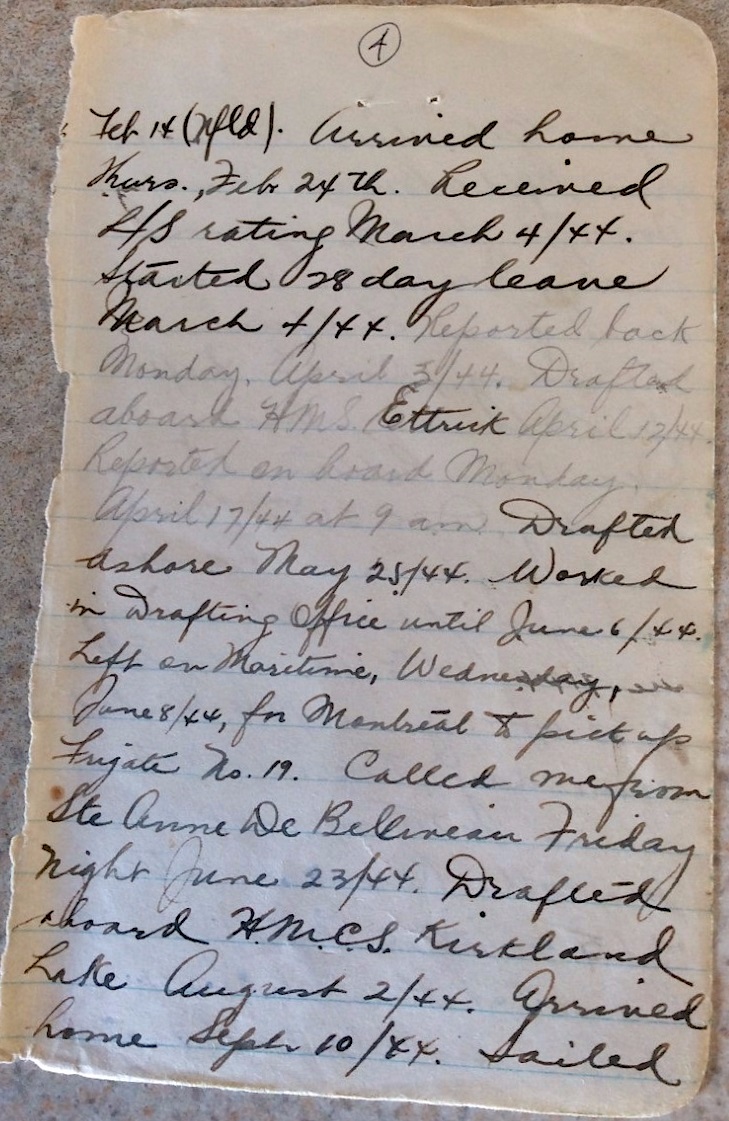 4
Feb 14 (Nfld). Arrived home
Thurs., Feb. 24th. Received
L/S rating March 4/44.
Started 28 day leave
March 4/44. Reported back
Monday, April 3/44. Drafted
aboard HMS Ettrick April 12/44.
Reported on board Monday,
April 17/44 at 9 am. Drafted
ashore May 25/44. Worked
in Drafting Office until June 6/44.
Left on Maritime, Wednesday,
June 8/44, for Montreal to pick up
Frigate No. 19. Called me from
Ste Anne De Bellineau Friday
night June 23/44. Drafted
aboard H.M.C.S. Kirkland
Lake August 2/44. Arrived
home Sept. 10/44. Sailed